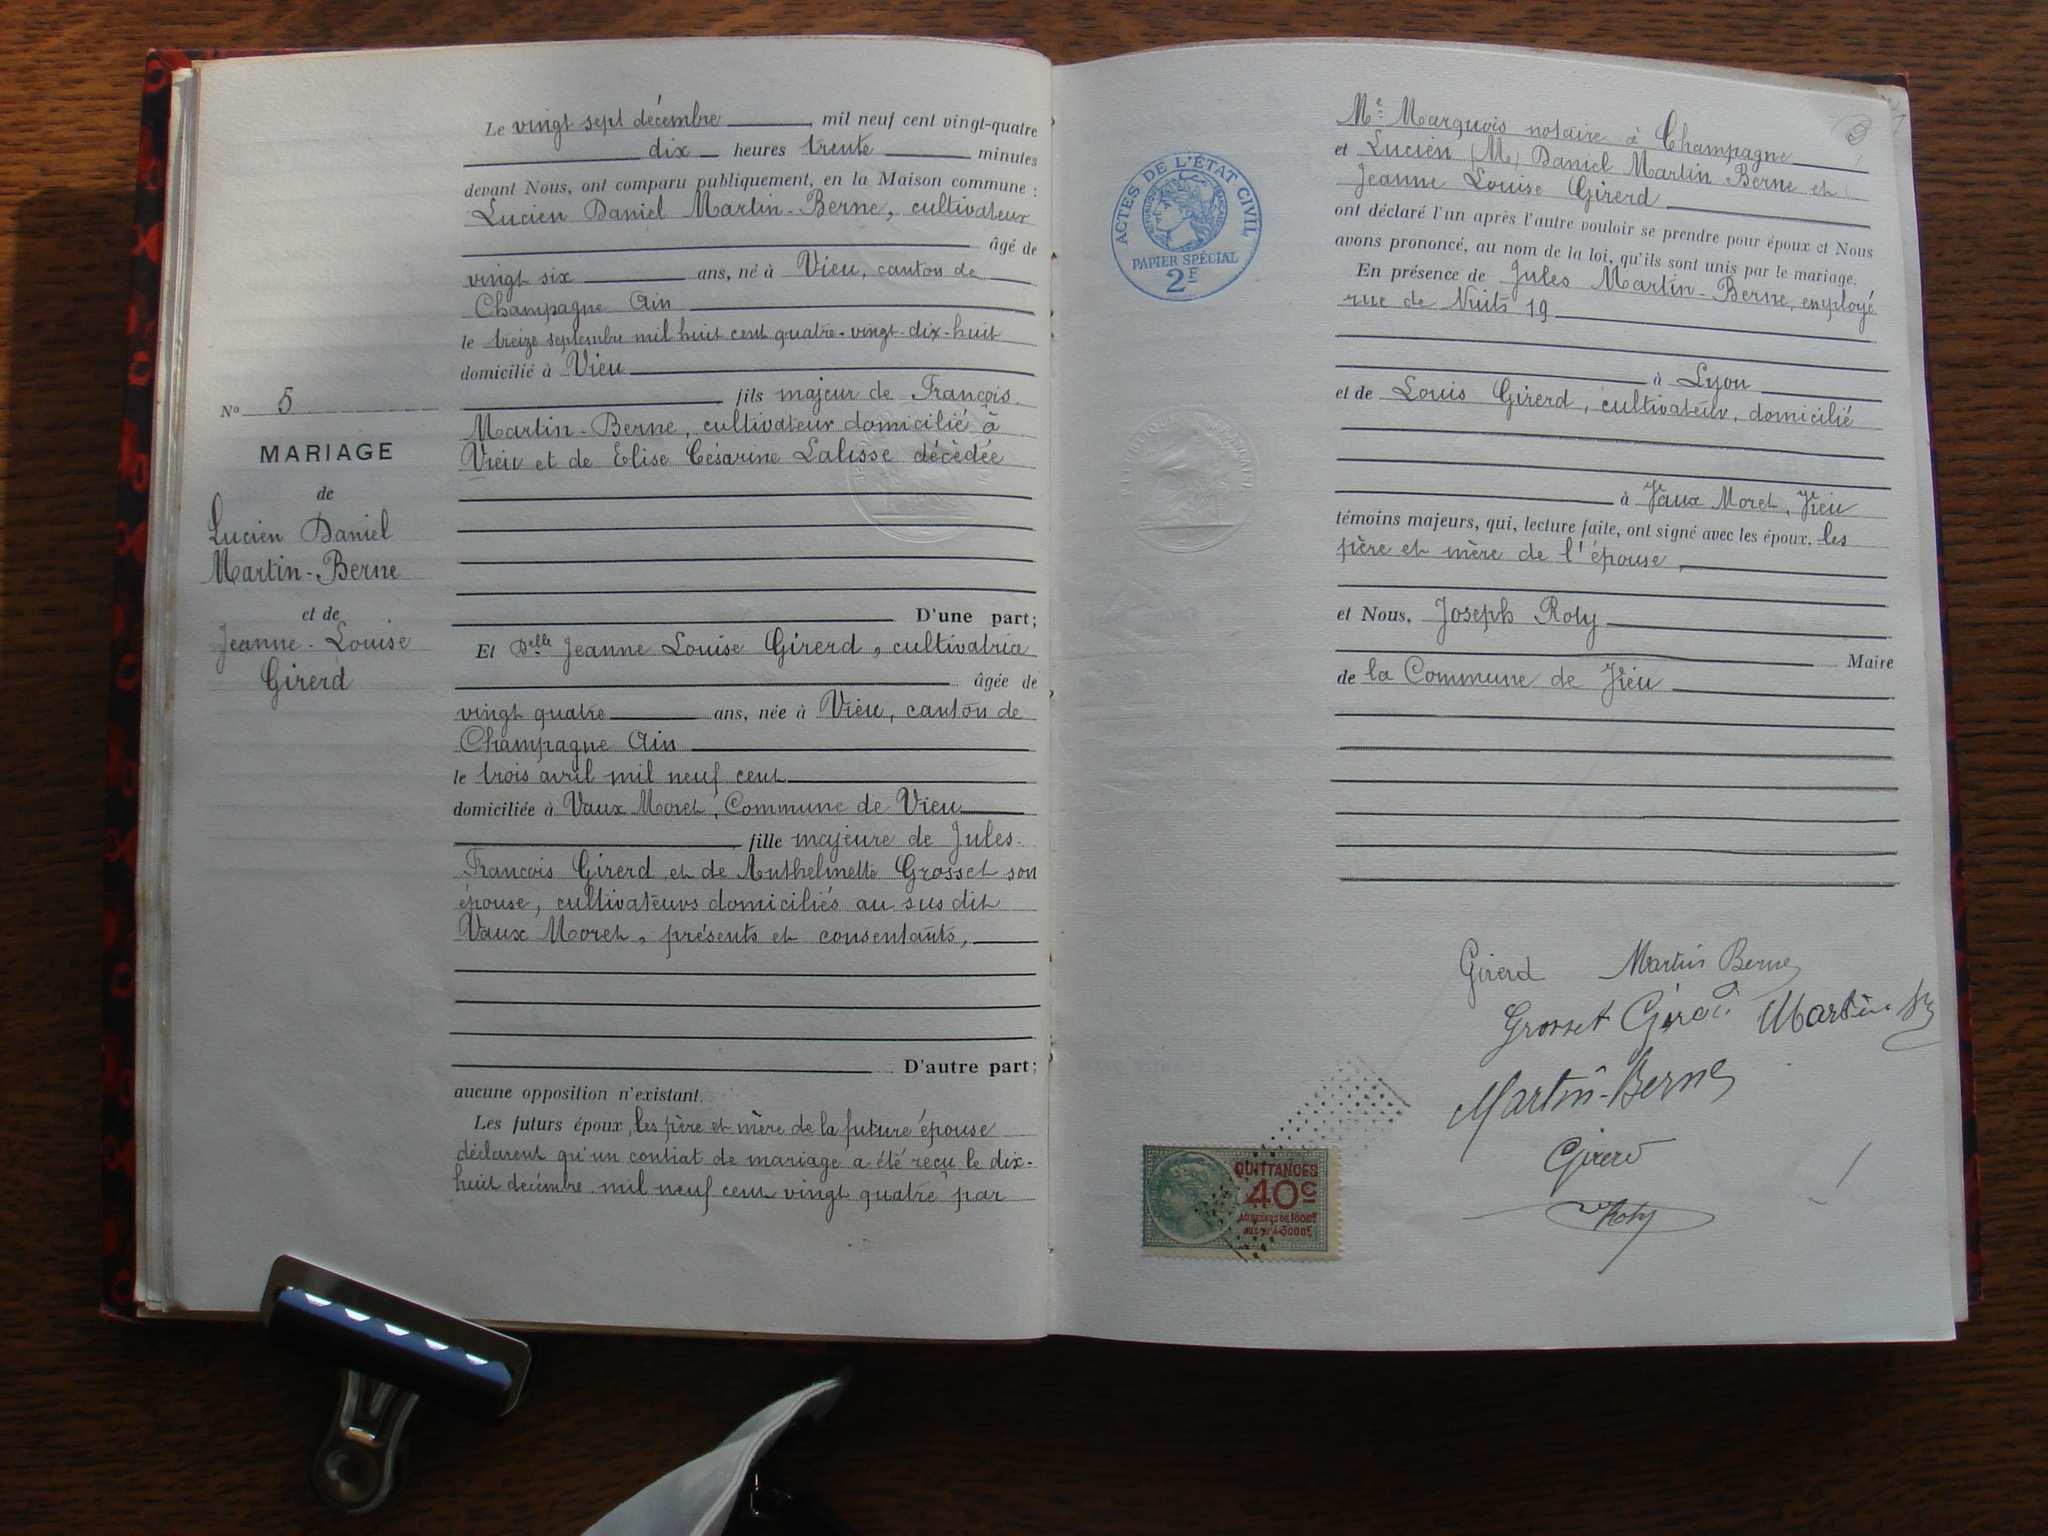 N° 5
MARIAGE
de
Lucien Daniel
Martin-Berne
et de
Jeanne-Louise
Girerd
Le vingt sept décembre mil neuf cent vingt-quatre
dix heures trente minutes
devant Nous, ont comparu publiquement, en la Maison commune :
Lucien Daniel Martin-Berne, cultivateur
âgé de
vingt six ans, né à Vieu, canton de
Champagne Ain
le treize septembre mil huit cent quatre-vingt-dix-huit
domicilié à Vieu
fils majeur de François
Martin-Berne, cultivateur domicilié à
Vieu et de Elise Césarine Lalisse décèdée
D'une part;
Et Delle Jeanne Louise Girerd, cultivatrice
âgée de
vingt quatre ans, née à Vieu, canton de
Champagne Ain
le trois avril mil neuf cent
domiciliée à Vaux Moret, Commune de Vieu
fille majeure de Jules
François Girerd et de Anthelmette Grosset son
épouse, cultivateurs domiciliés au susdit
Vaux Moret, présents et consentants,
D'autre part;
aucune opposition n'existant.
Les futurs époux, les père et mère de la future épouse
déclarent qu'un contrat de mariage a été reçu le dix-
huit décembre mil neuf cent vingt quatre par
Me Marquois notaire à Champagne
et Lucien (M) Daniel Martin Berne et
Jeanne Louise Girerd
ont déclaré l'un après l'autre vouloir se prendre pour époux et Nous
avons prononcé, au nom de la loi, qu'ils sont unis par le mariage.
En présence de Jules Martin-Berne, employé
rue de Nuits 19
à Lyon
et de Louis Girerd, cultivateur, domicilié
à Vaux Moret, Vieu
témoins majeurs, qui, lecture faite, ont signé avec les époux, les
père et mère de l'épouse,
et Nous, Joseph Roty
Maire
de la Commune de Vieu
ACTES DE L'ÉTAT CIVIL
RÉPUBLIQUE FRANÇAISE
PAPIER SPÉCIAL
2F
Girerd Martin Berne
Grosset Girerd Martin
Martin-Berne
Girerd
Roty
QUITTANCES
40c